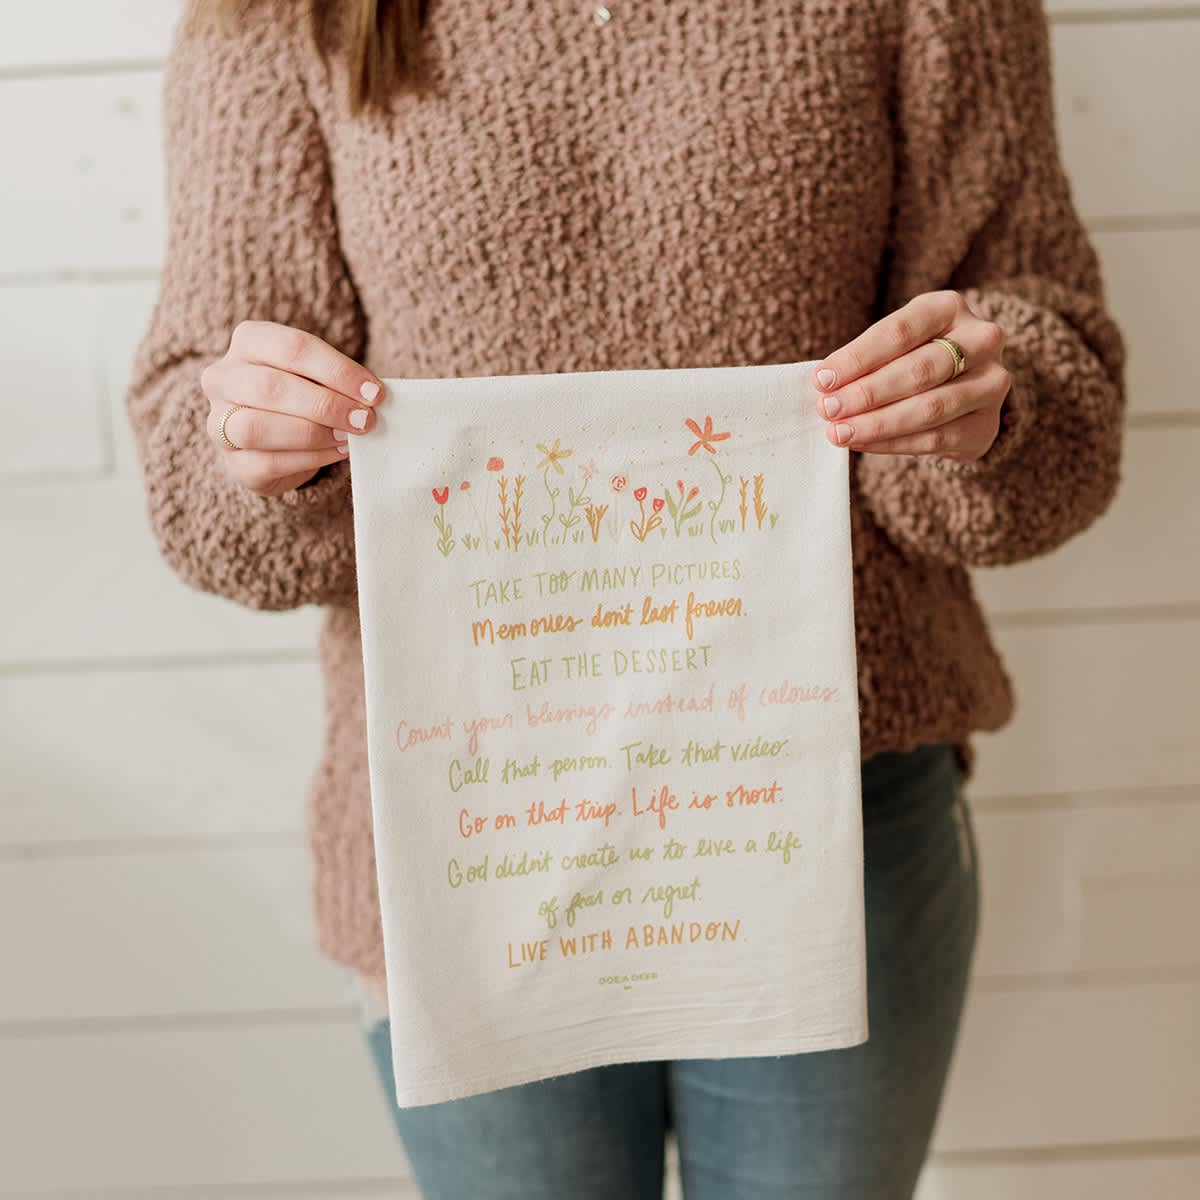 TAKE TOO MANY PICTURES.
Memories don't last forever.
EAT THE DESSERT.
Count your blessings instead of calories.
Call that person. Take that video.
Go on that trip. Life is short.
God didn't create us to live a life
of fear or regret.
LIVE WITH ABANDON.
DOE A DEER